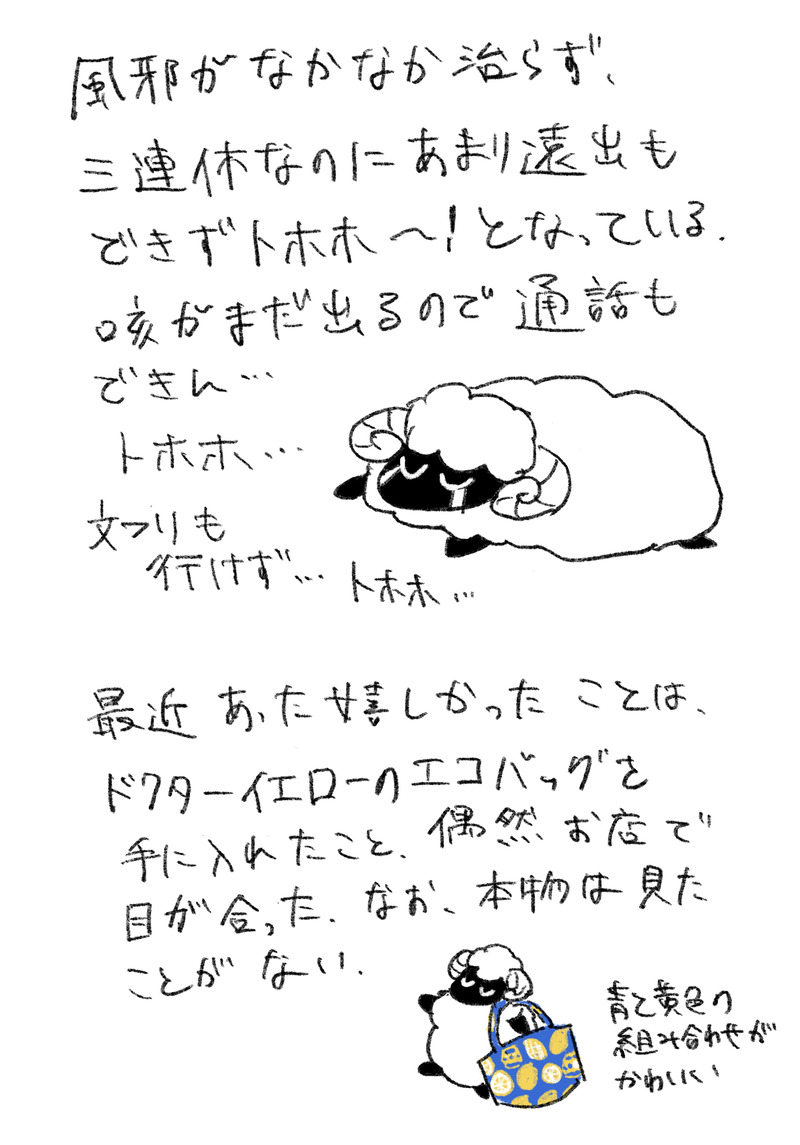 風邪がなかなか治らず、
三連休なのにあまり遠出も
できずトホホ〜!となっている.
咳がまだ出るので通話も
できん…
トホホ…
文フリも
行けず…トホホ…
最近あった嬉しかったことは、
ドクターイエローのエコバッグを
手に入れたこと.偶然お店で
目が合った.なお、本物は見た
ことがない.
青と黄色の
組み合わせが
かわいい